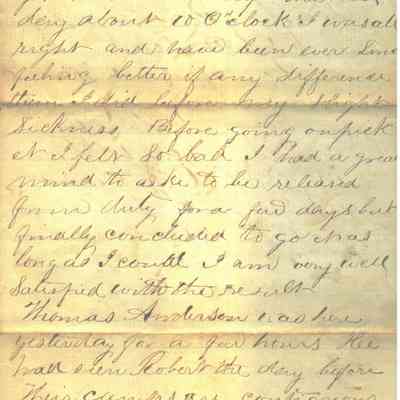 day about 10 O'clock I was all
right and have been ever since
feeling better if any difference
than I did before my slight
Sickness. Before going on pick
et I felt so bad I had a great
mind to ask to be released
from duty for a few days but
finally concluded to go it as
long as I could I am very well
Satisfied with the result
Thomas Anderson was here
yesterday for a few hours He
had seen Robert the day before
Their camps are